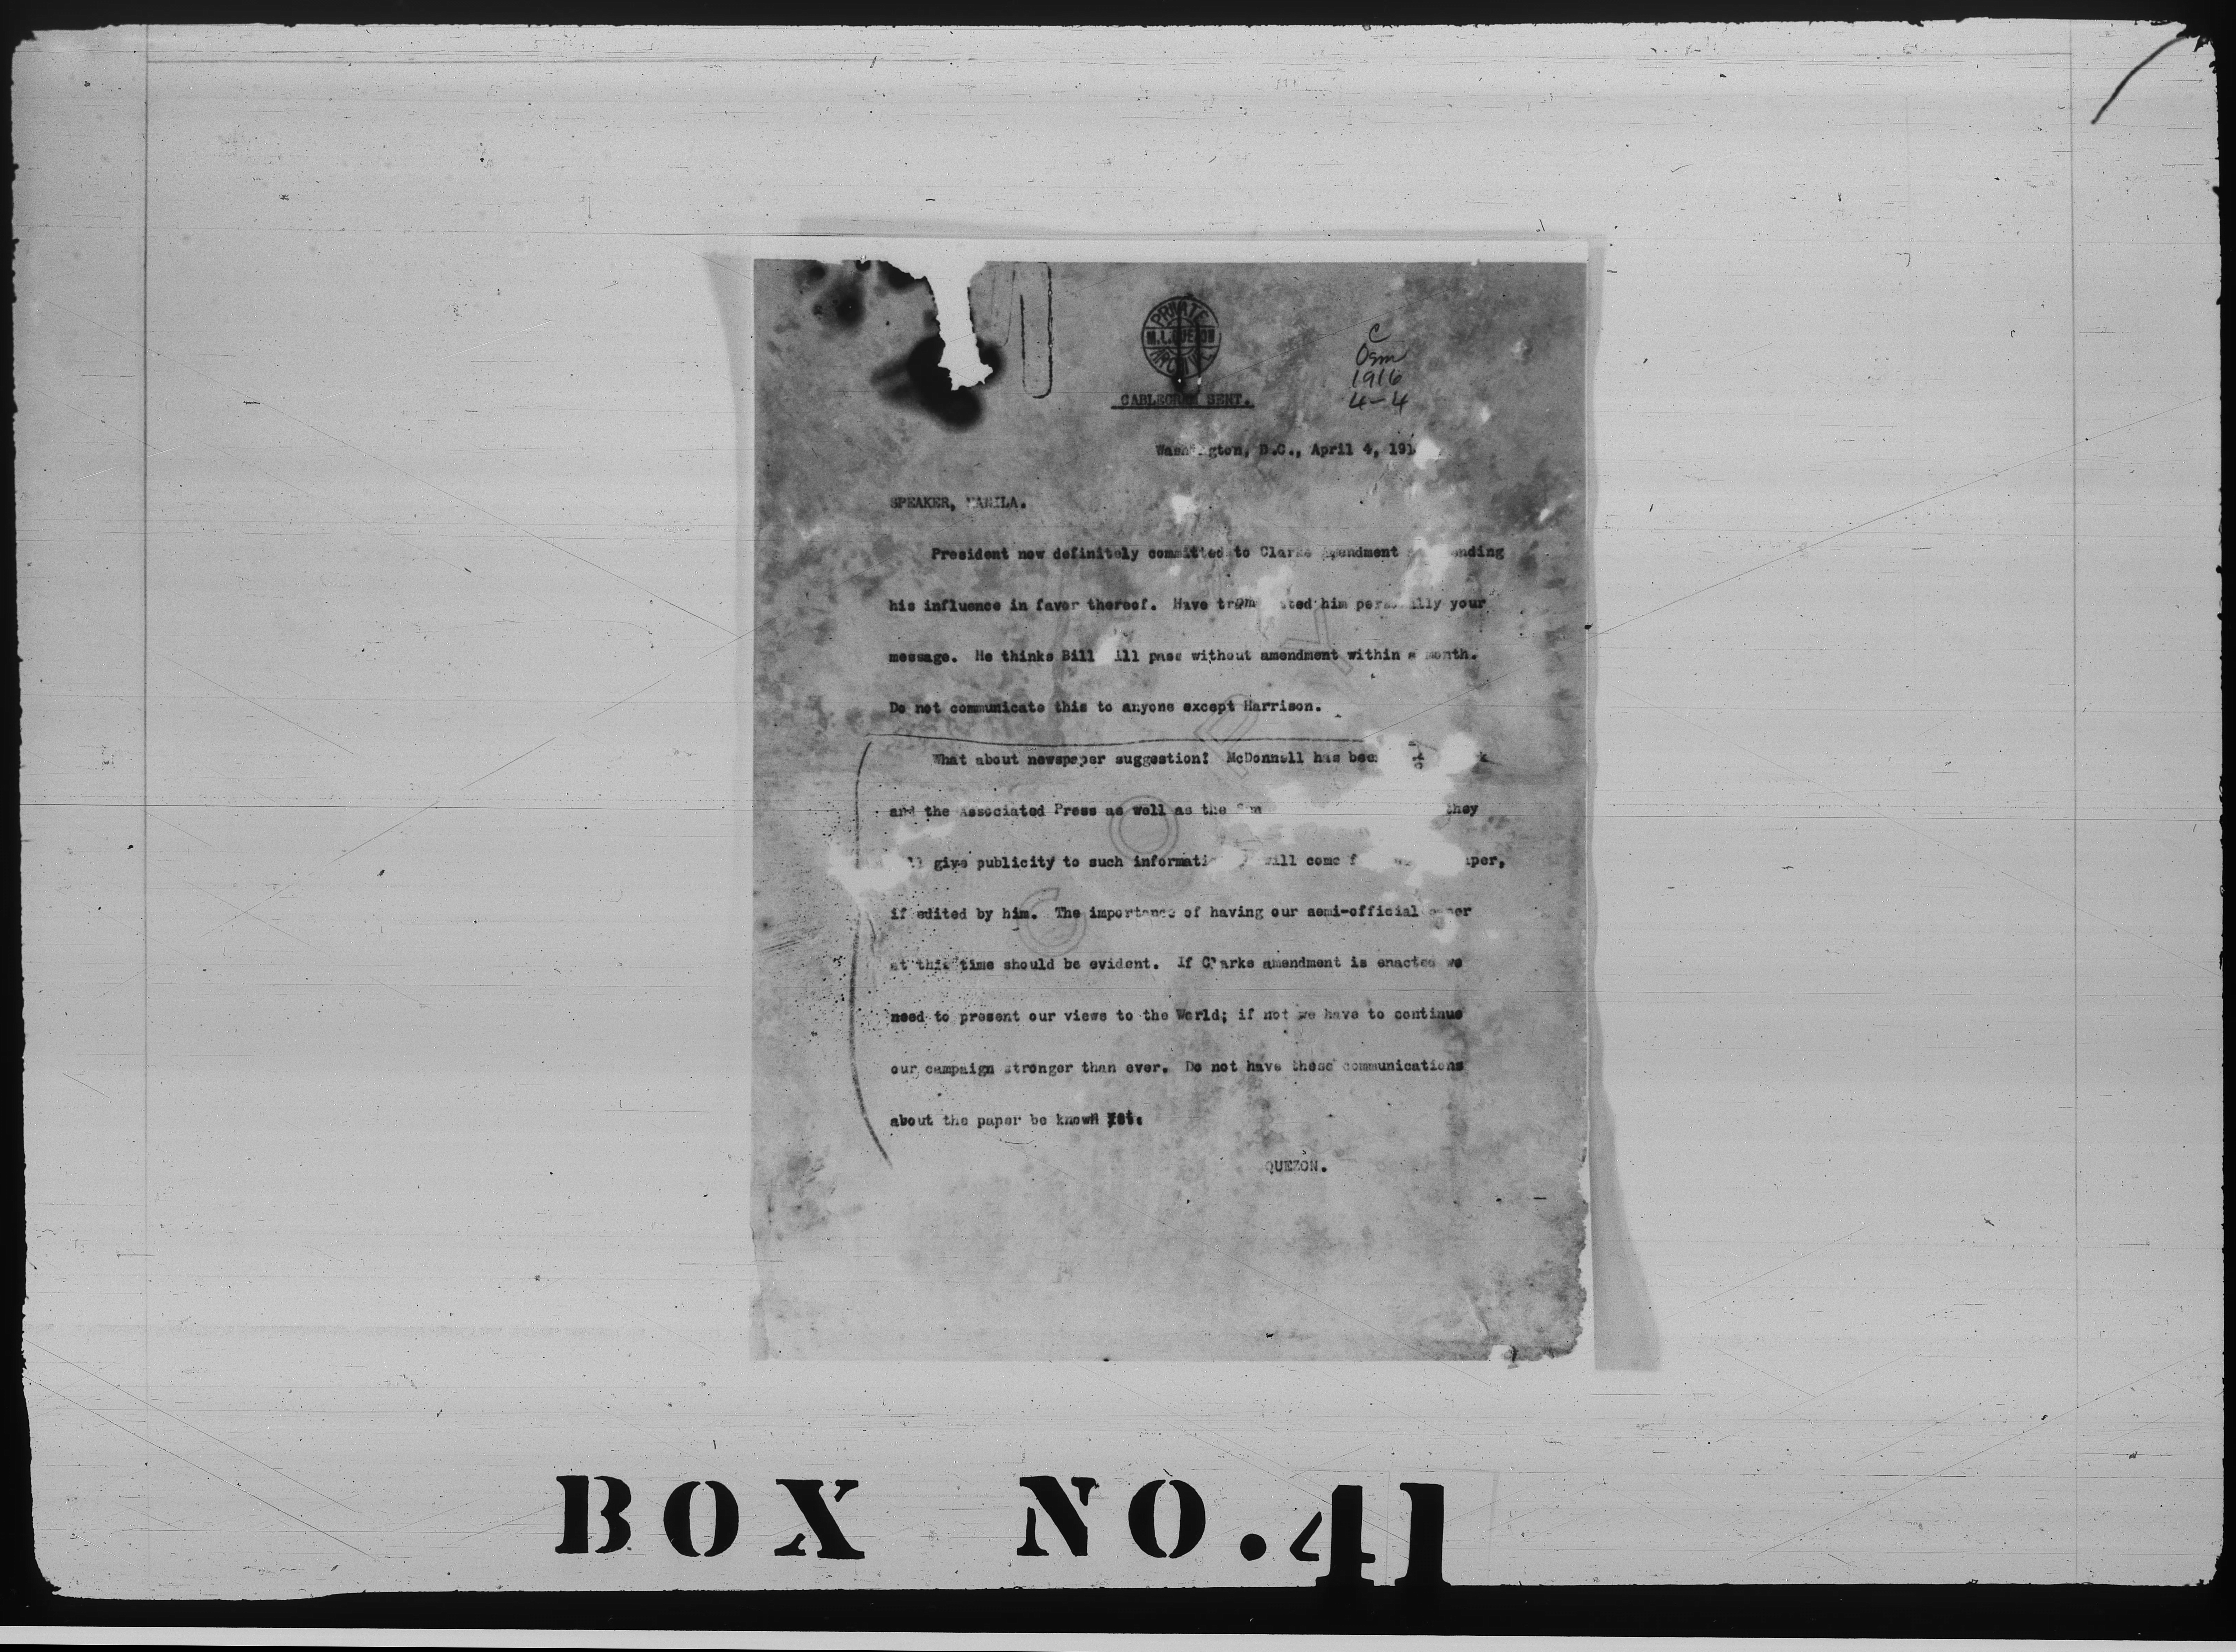 PRIVATE
M.L. QUEZON
C
Osm
1916
4-4
CABLEGRAM SENT.
Washington, D.C., April 4, 191
SPEAKER, MANILA.
President now definitely committed to Clarke Amendment
his influence in favor thereof. Have him personally your
message. He thinks Bill will pass without amendment within a month.
Do not communicate this to anyone except Harrison.
What about newspaper suggestion? McDonnell has been
and the Associated Press as well as the they
give publicity to such information will come
if edited by him. The importance of having our semi-official paper
at this time should be evident. If Clarke amendment is enacted we
need to present our views to the World; if not we have to continue
our campaign stronger than ever. Do not have these communications
about the paper be known yet.
QUEZON.
COPY
BOX NO. 41